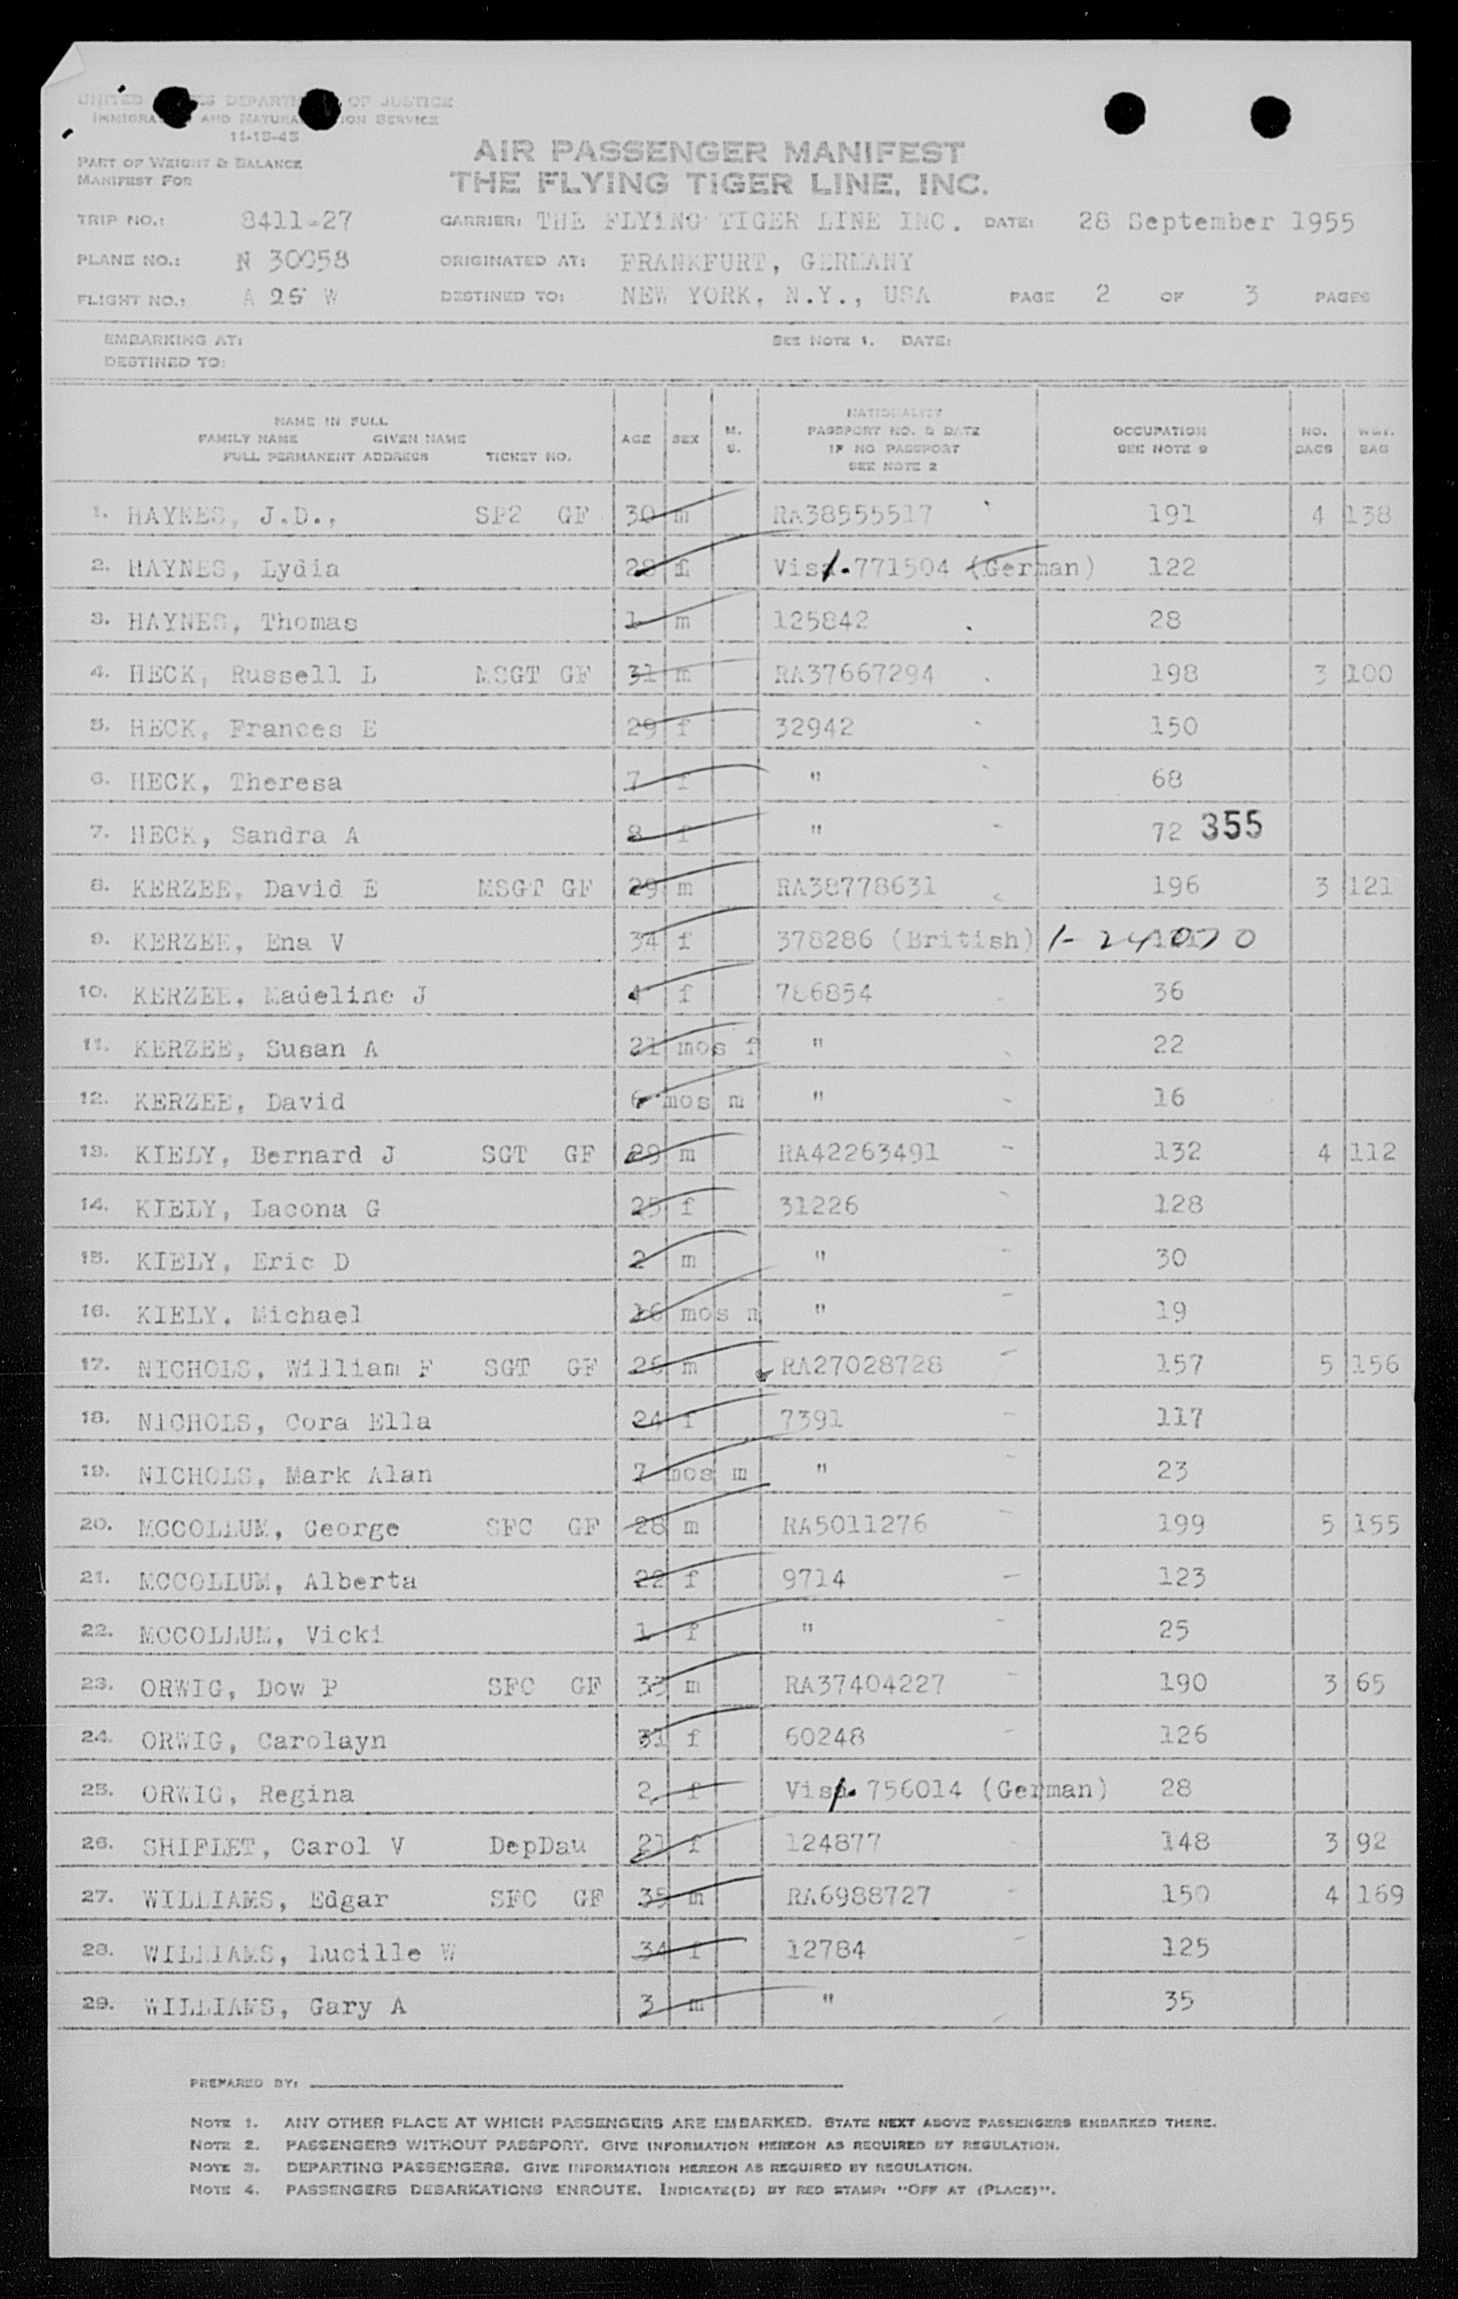 UNITED STATES DEPARTMENT OF JUSTICE
IMMIGRATION AND NATURALIZATION SERVICE
11-15-45
PART OF WEIGHT & BALANCE
MANIFEST FOR
AIR PASSENGER MANIFEST
THE FLYING TIGER LINE, INC.
TRIP NO.: 8411-27 CARRIER: THE FLYING TIGER LINE INC. DATE: 28 September 1955
PLANE NO.: N 30058 ORIGINATED AT: FRANKFURT, GERMANY
FLIGHT NO.: A 25 W DESTINED TO: NEW YORK, N.Y., USA PAGE 2 OF 3 PAGES
EMBARKING AT: SEE NOTE 1. DATE:
DESTINED TO:
NAME IN FULL
FAMILY NAME GIVEN NAME
FULL PERMANENT ADDRESS TICKET NO.
AGE SEX M. S.
NATIONALITY
PASSPORT NO. & DATE
IF NO PASSPORT
SEE NOTE 2
OCCUPATION
SEE NOTE 9
NO. BAGS WGT. BAG
1. HAYNES, J.D., SP2 GF 30 m RA38555517 191 4 138
2. HAYNES, Lydia 28 f Visa.771504 (German) 122
3. HAYNES, Thomas 1 m 125842 28
4. HECK, Russell L MSGT GF 31 m RA37667294 198 3 100
5. HECK, Frances E 29 f 32942 150
6. HECK, Theresa 7 f " 68
7. HECK, Sandra A 8 f " 72 355
8. KERZEE, David E MSGT GF 29 m RA38778631 196 3 121
9. KERZEE, Ena V 34 f 378286 (British) 1-24070
10. KERZEE, Madeline J 4 f 786854 36
11. KERZEE, Susan A 21 mos f " 22
12. KERZEE, David 6 mos m " 16
13. KIELY, Bernard J SGT GF 29 m RA42263491 132 4 112
14. KIELY, Lacona G 25 f 31226 128
15. KIELY, Eric D 2 m " 30
16. KIELY, Michael 16 mos m " 19
17. NICHOLS, William F SGT GF 26 m RA27028728 157 5 156
18. NICHOLS, Cora Ella 24 f 7391 117
19. NICHOLS, Mark Alan 7 mos m " 23
20. MCCOLLUM, George SFC GF 28 m RA5011276 199 5 155
21. MCCOLLUM, Alberta 22 f 9714 123
22. MCCOLLUM, Vicki 1 f " 25
23. ORWIG, Dow P SFC GF 33 m RA37404227 190 3 65
24. ORWIG, Carolayn 31 f 60248 126
25. ORWIG, Regina 2 f Visa. 756014 (German) 28
26. SHIFLET, Carol V DepDau 21 f 124877 148 3 92
27. WILLIAMS, Edgar SFC GF 35 m RA6988727 150 4 169
28. WILLIAMS, Lucille W 34 f 12784 125
29. WILLIAMS, Gary A 3 m " 35
PREPARED BY:
NOTE 1. ANY OTHER PLACE AT WHICH PASSENGERS ARE EMBARKED. STATE NEXT ABOVE PASSENGERS EMBARKED THERE.
NOTE 2. PASSENGERS WITHOUT PASSPORT. GIVE INFORMATION HEREON AS REQUIRED BY REGULATION.
NOTE 3. DEPARTING PASSENGERS. GIVE INFORMATION HEREON AS REQUIRED BY REGULATION.
NOTE 4. PASSENGERS DEBARKATIONS ENROUTE. INDICATE(D) BY RED STAMP: "OFF AT (PLACE)".